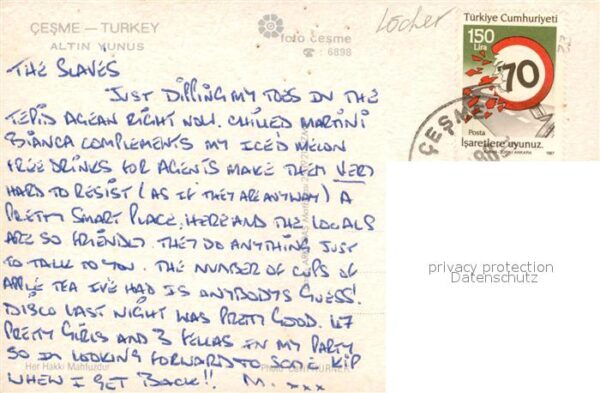 ÇEŞME — TURKEY
ALTIN YUNUS
foto çeşme
☎ : 6898
Locher
Türkiye Cumhuriyeti
150
Lira
70
Posta
İşaretlere uyunuz.
1987
ÇEŞME
THE SLAVES
JUST DIPPING MY TOES IN THE
TEPID AGEAN RIGHT NOW. CHILLED MARTINI
BIANCA COMPLEMENTS MY ICED MELON
FREE DRINKS FOR AGENTS MAKE THEM VERY
HARD TO RESIST (AS IF THEY ARE ANYWAY) A
PRETTY SMART PLACE, HERE AND THE LOCALS
ARE SO FRIENDLY. THEY DO ANYTHING JUST
TO TALK TO YOU. THE NUMBER OF CUPS OF
APPLE TEA I'VE HAD IS ANYBODYS GUESS!
DISCO LAST NIGHT WAS PRETTY GOOD. 47
PRETTY GIRLS AND 3 FELLAS IN MY PARTY
SO IM LOOKING FORWARD TO SOME KIP
WHEN I GET BACK!! M. xxx
Her Hakkı Mahfuzdur
privacy protection
Datenschutz